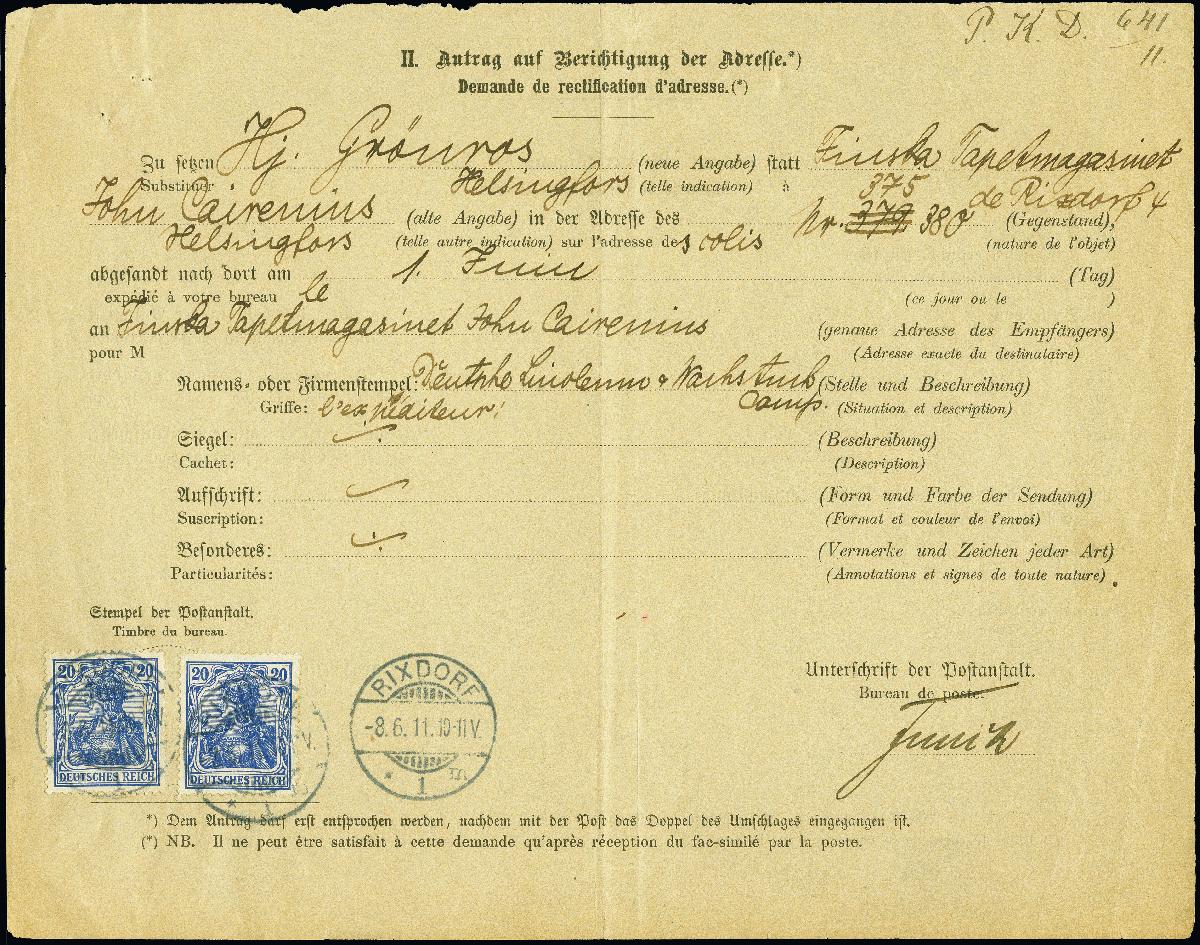 P. K. D. 641
11.
II. Antrag auf Berichtigung der Adresse.*)
Demande de rectification d'adresse.(*)
Zu setzen Hj. Grönros (neue Angabe) statt Finska Tapetmagasinet
Substituer Helsingfors (telle indication) à 375 de Rixdorf 4
John Cairenius (alte Angabe) in der Adresse des Nr. 379 380 (Gegenstand),
Helsingfors (telle autre indication) sur l'adresse des colis (nature de l'objet)
abgesandt nach dort am 1. Juni (Tag)
expédié à votre bureau le (ce jour ou le )
an Finska Tapetmagasinet John Cairenius (genaue Adresse des Empfängers)
pour M (Adresse exacte du destinataire)
Namens- oder Firmenstempel: Deutsche Linoleum & Wachstuch (Stelle und Beschreibung)
Griffe: l'expéditeur: Comp. (Situation et description)
Siegel: (Beschreibung)
Cachet: (Description)
Aufschrift: (Form und Farbe der Sendung)
Suscription: (Format et couleur de l'envoi)
Besonderes: (Vermerke und Zeichen jeder Art)
Particularités: (Annotations et signes de toute nature).
Stempel der Postanstalt.
Timbre du bureau.
20 20 20 20
DEUTSCHES REICH DEUTSCHES REICH
RIXDORF
-8.6.11.10-11V.
* 1 m
Unterschrift der Postanstalt.
Bureau de poste:
*) Dem Antrag darf erst entsprochen werden, nachdem mit der Post das Doppel des Umschlages eingegangen ist.
(*) NB. Il ne peut être satisfait à cette demande qu'après réception du fac-similé par la poste.